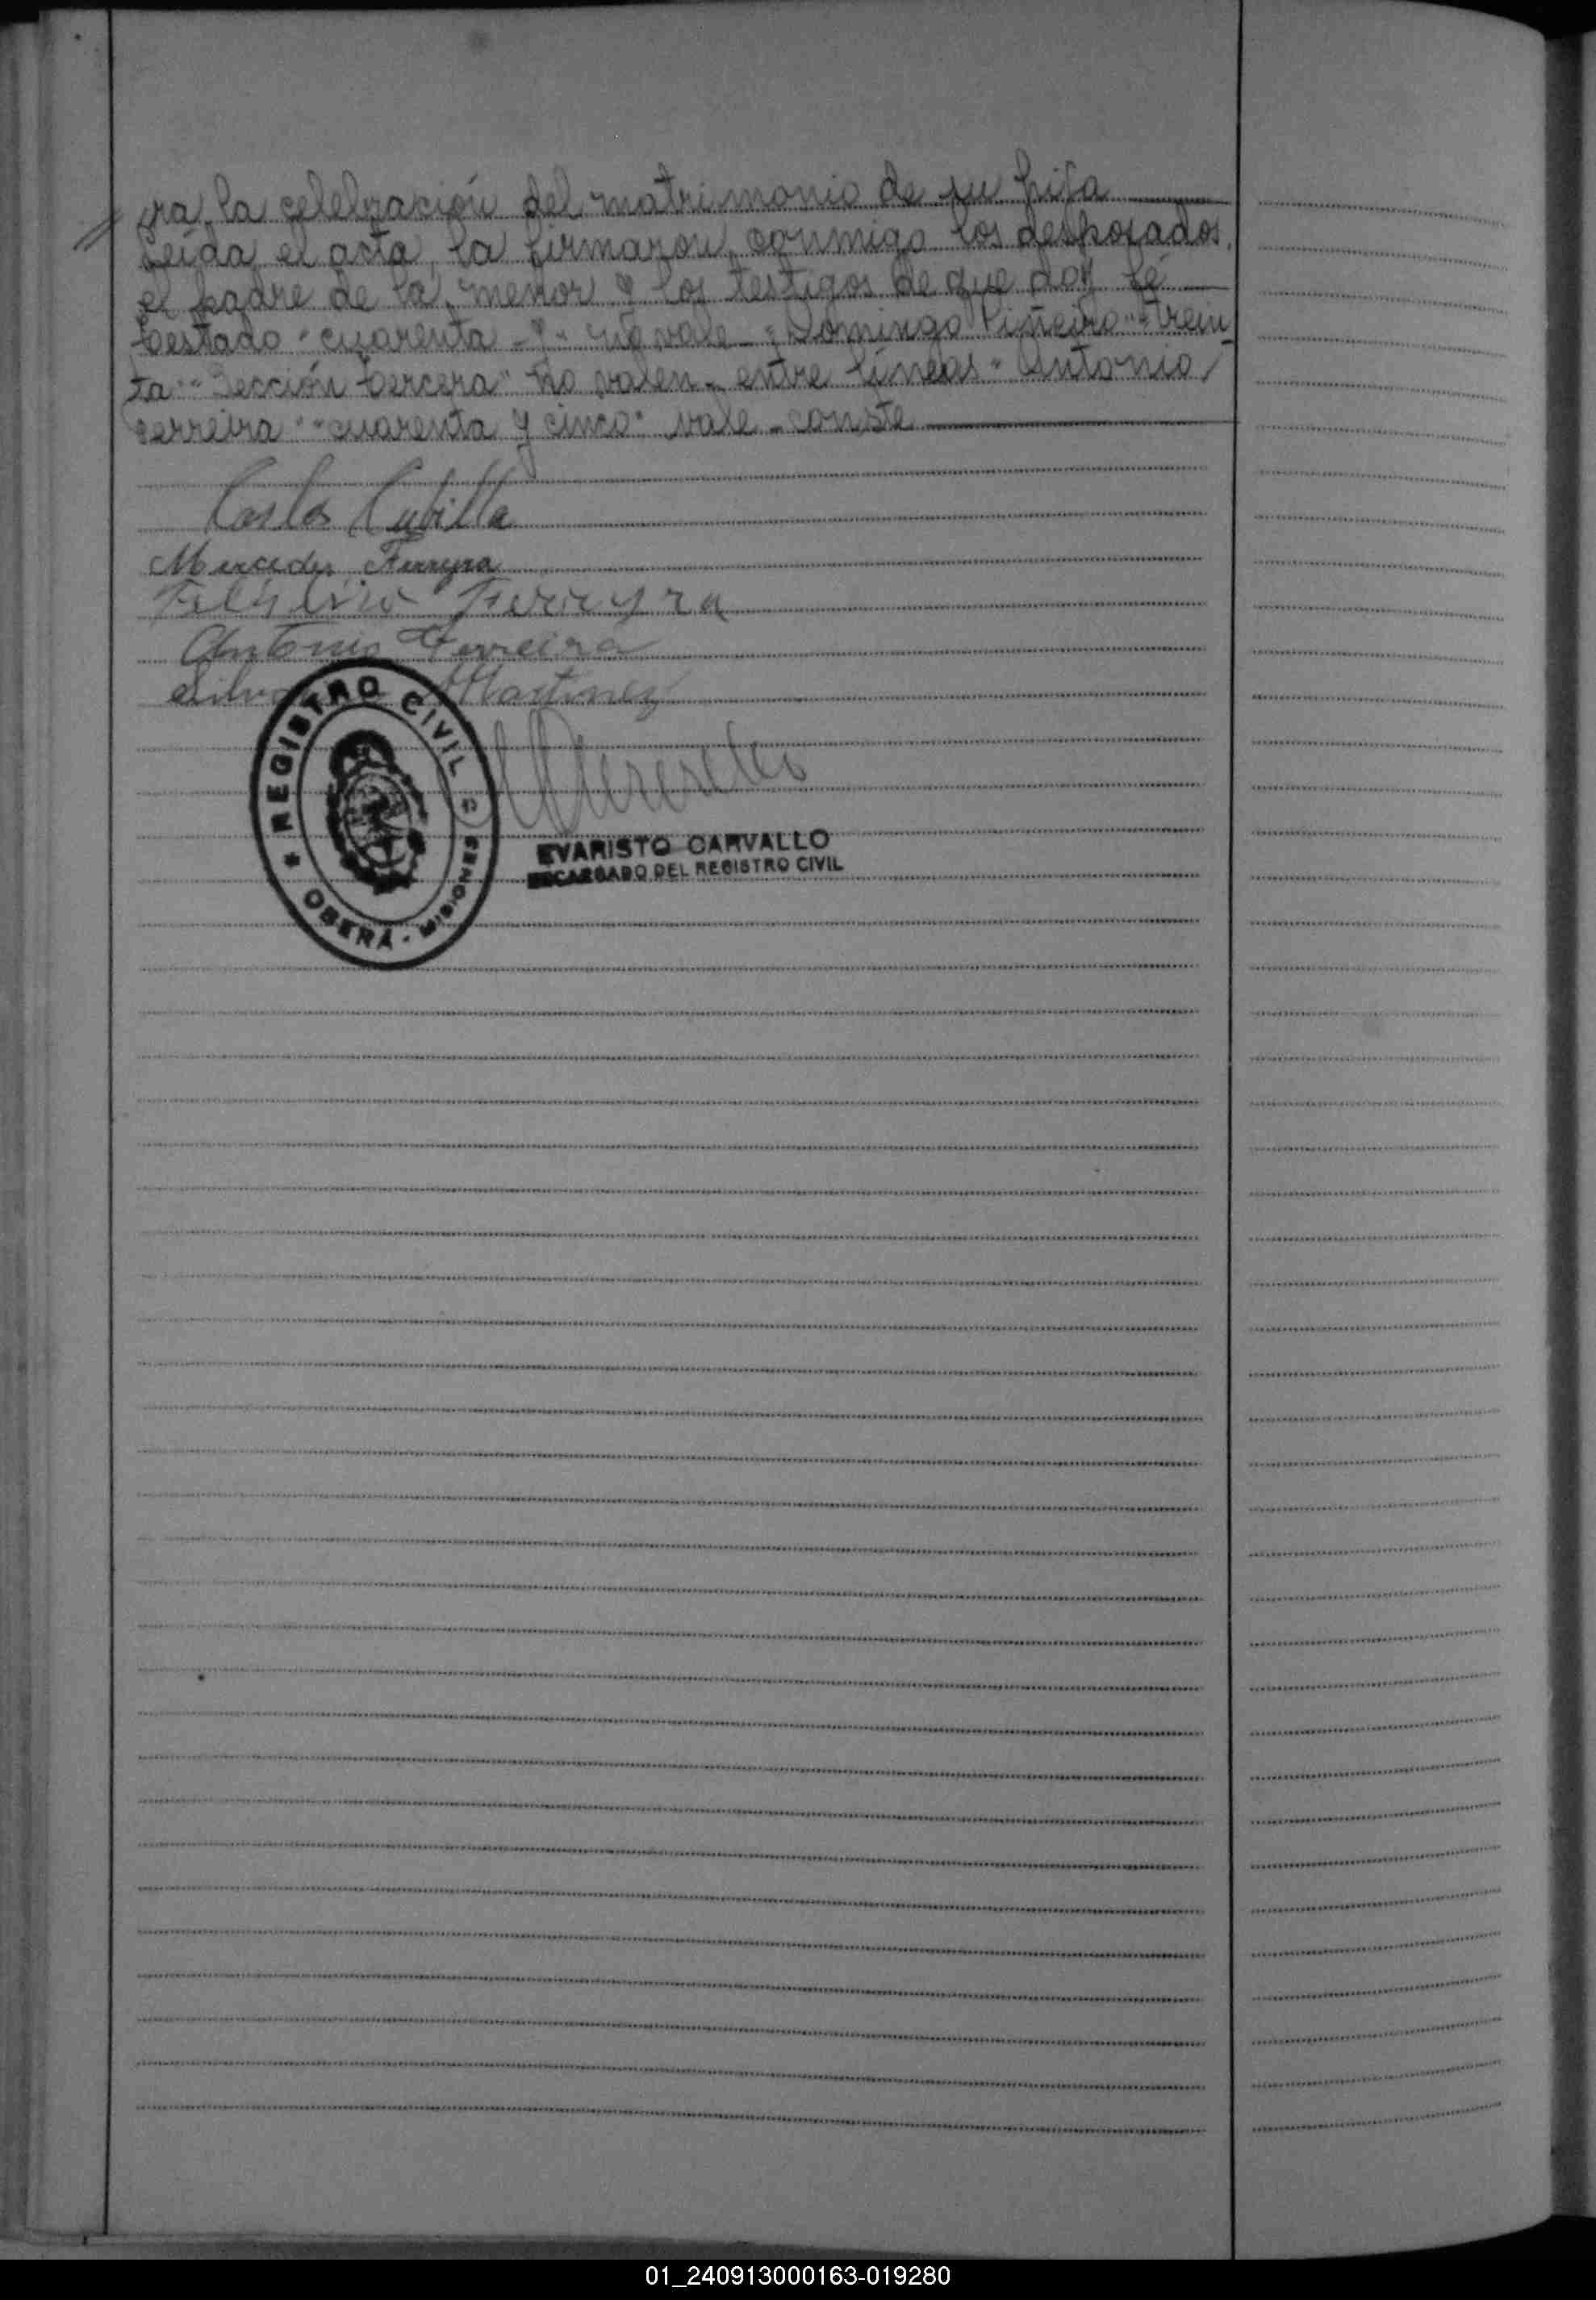 ra la celebración del matrimonio de su hija
Leída el acta, la firmaron conmigo los desposados,
el padre de la menor y los testigos de que doy fé
Testado "cuarenta - y - no vale - Domingo Piñeiro" "trein
ta" "Sección tercera" no valen - entre líneas "Antonio
Ferreira" "cuarenta y cinco" vale - conste
Carlos Cubilla
Mercedes Ferreyra
Ferreyra
Antonio Ferreira
Martinez
REGISTRO CIVIL
OBERÁ - MISIONES
EVARISTO CARVALLO
ENCARGADO DEL REGISTRO CIVIL
01_240913000163-019280